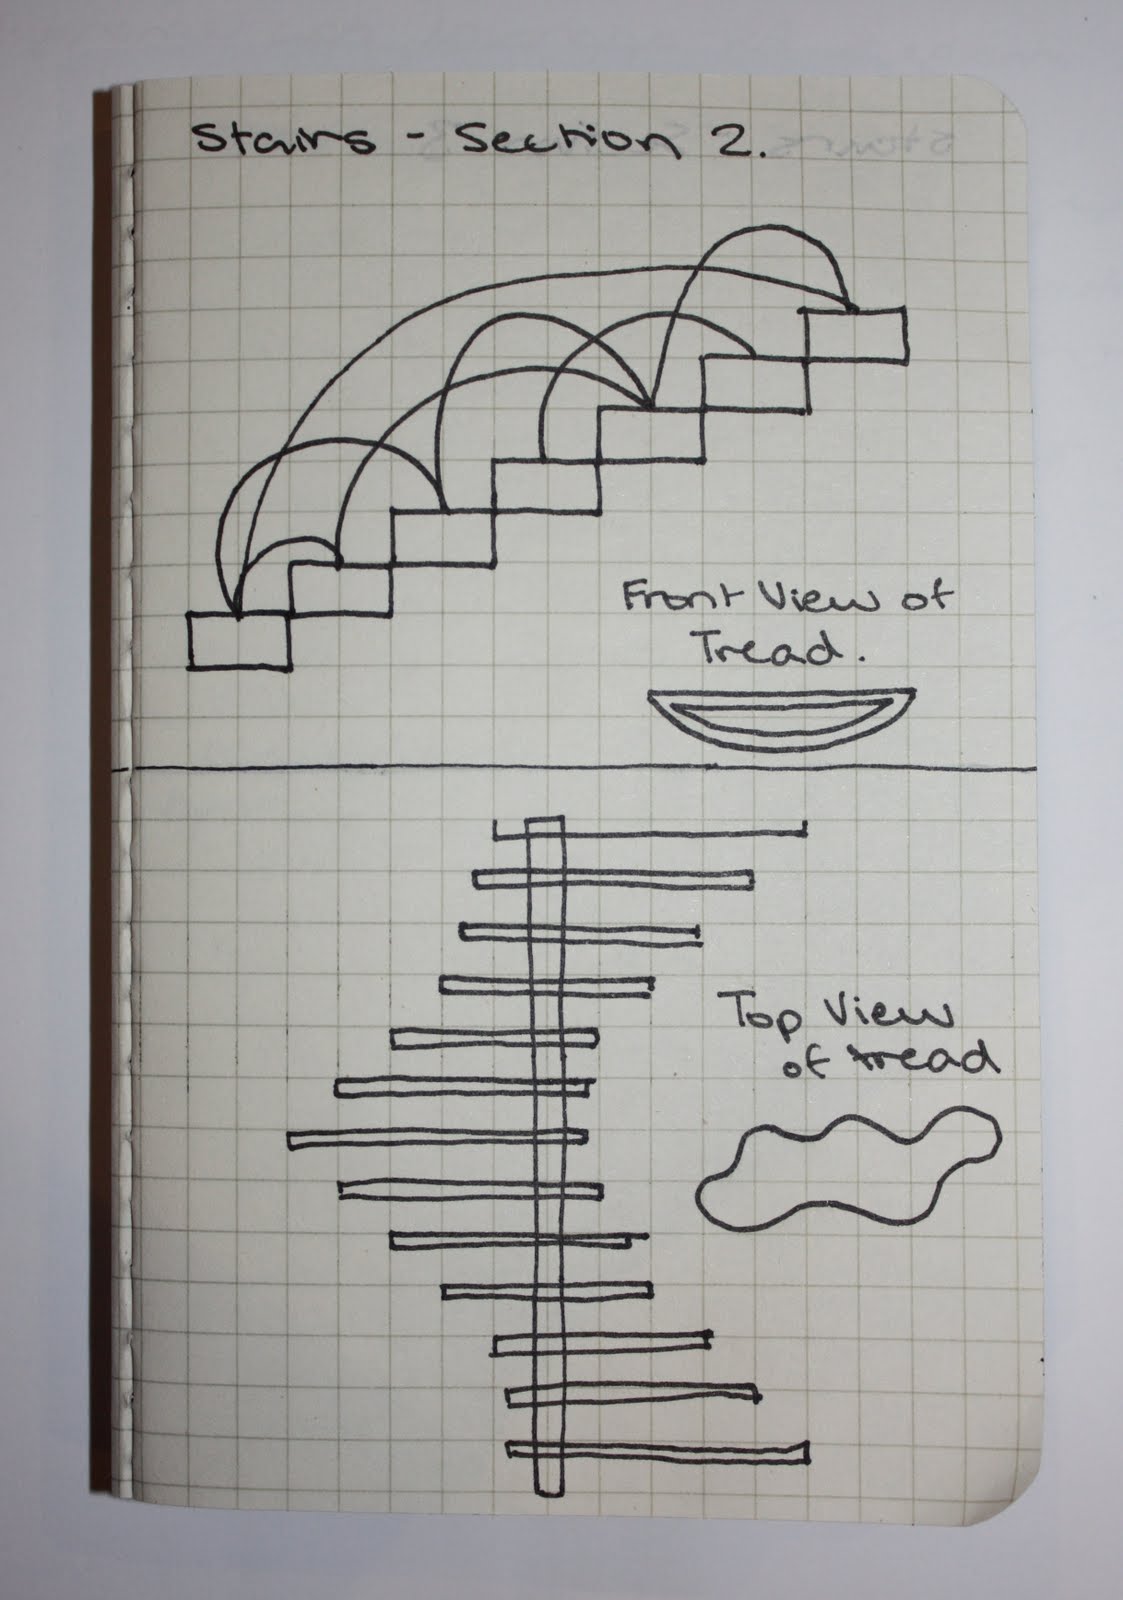 Stairs - Section 2.
Front View of
Tread.
Top View
of tread